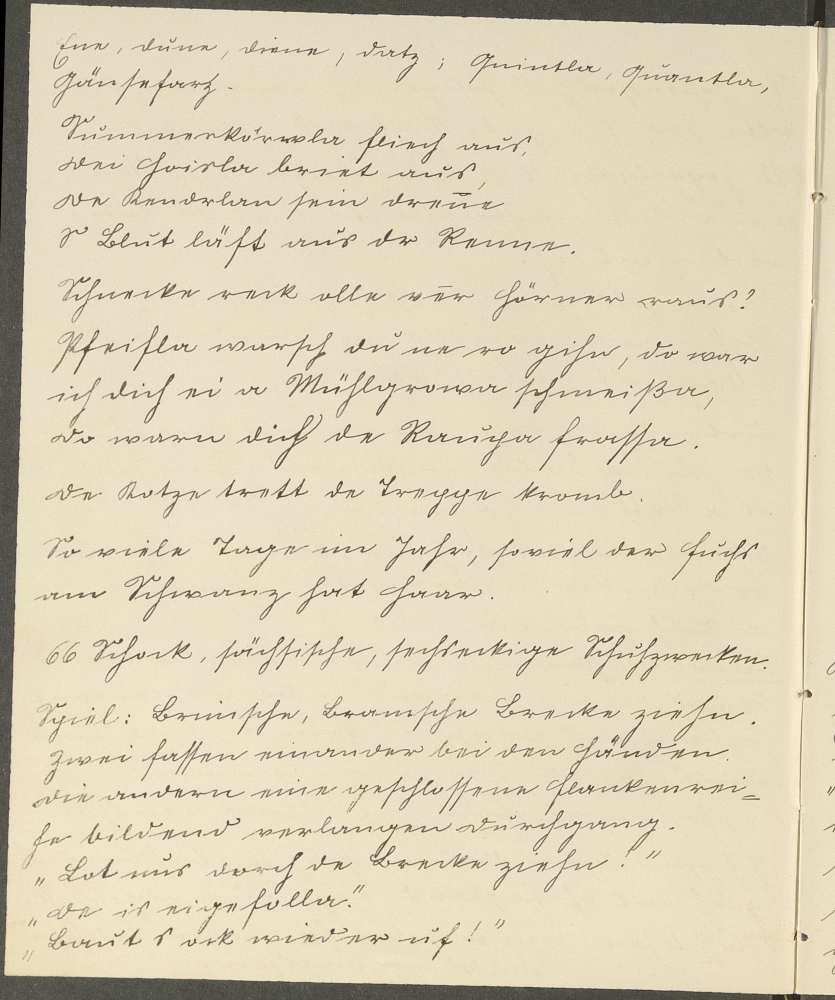 Ene, dune, diene, datz; Quintla, Quantla,
Gänsefarz.
Summerkörwla fliech aus,
Dei Hoisla briet aus,
De Kendrlan sein drenne
S Blut läft aus dr Renne.
Schnecke reck olle vēr Hörner raus!
Pfeifla warsch du ne ro gihn, do war
ich dich ei a Mühlgrowa schmeißa,
Do warn dich de Raupa frassa.
De Kotze trett de Treppe kromb.
So viele Tage im Jahr, soviel der Fuchs
am Schwanz hat Haar.
66 Schock, sächsische, sechseckige Schuhzwecken.
Spiel: Brimsche, Bramsche Brecke ziehn.
Zwei fassen einander bei den Händen.
Die andern eine geschlossene Flankenrei=
he bildend verlangen Durchgang.
„Lot uns dorch de Brecke ziehn!"
„De is eigefolla."
„Baut s ock wieder uf!"